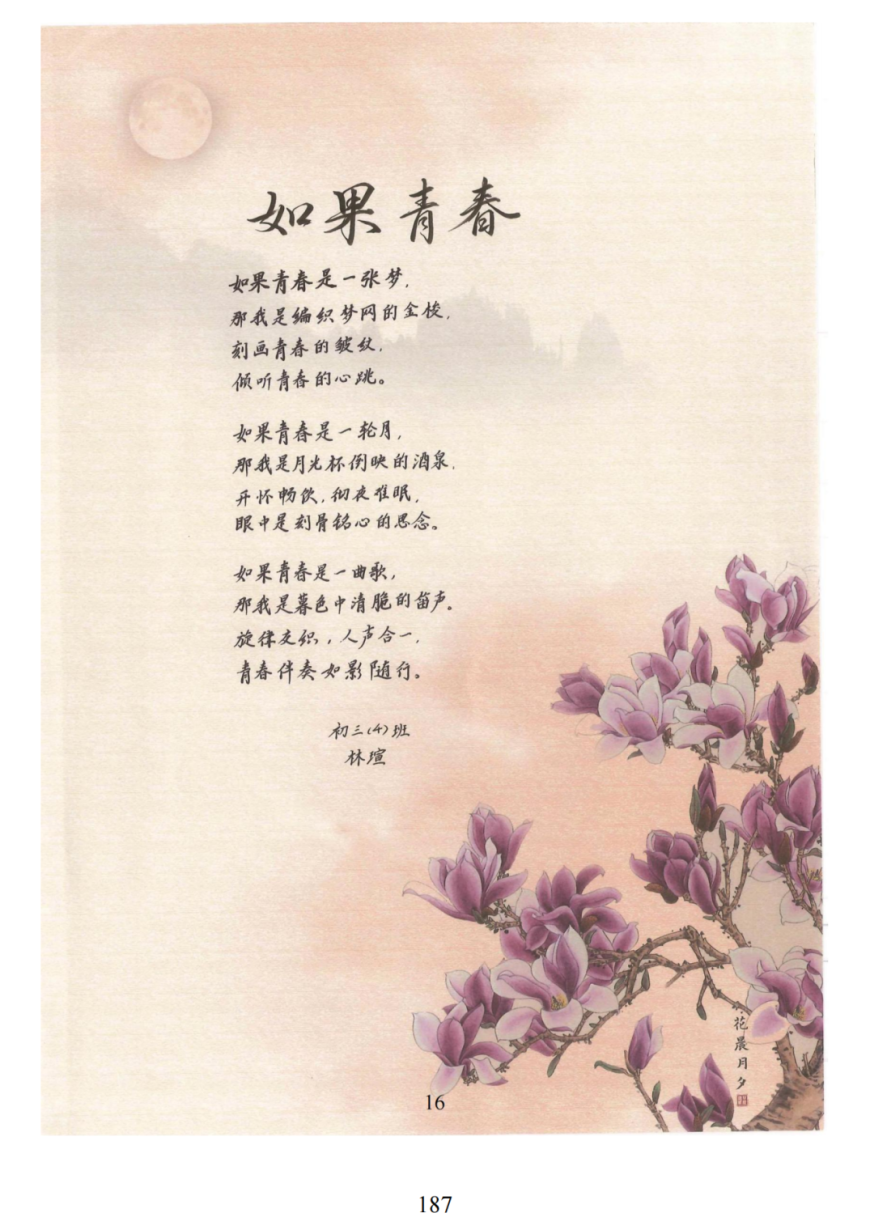 如果青春
如果青春是一张梦,
那我是编织梦网的金梭,
刻画青春的皱纹,
倾听青春的心跳。
如果青春是一轮月,
那我是月光杯倒映的酒泉,
开怀畅饮,彻夜难眠,
眼中是刻骨铭心的思念。
如果青春是一曲歌,
那我是暮色中清脆的笛声。
旋律交织,人声合一,
青春伴奏如影随行。
初三(4)班
林瑄
花晨月夕
16
187